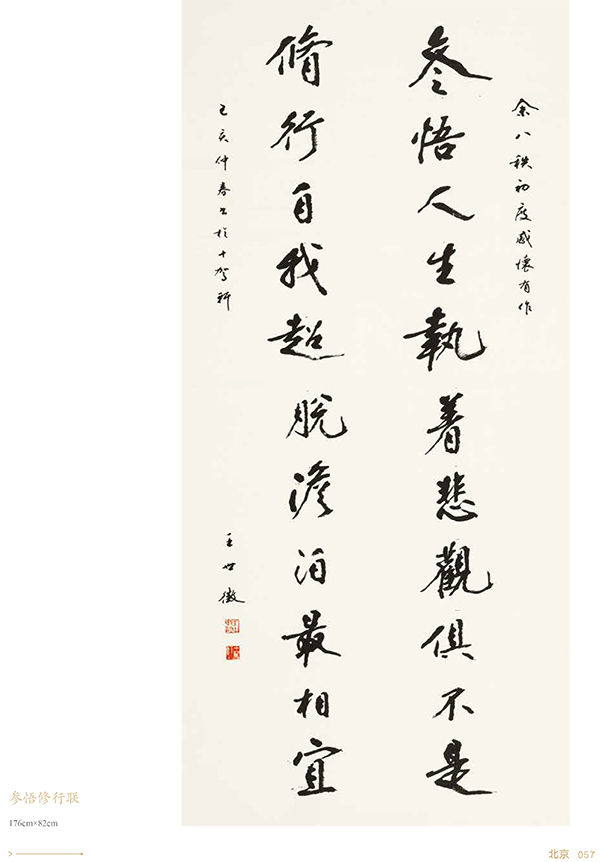 余八秩初度感懷有作
参悟人生執着悲觀俱不是
脩行自我超脫澹泊最相宜
己亥仲春書於十駕軒
王世徵
参悟修行联
176cm×82cm
北京 057